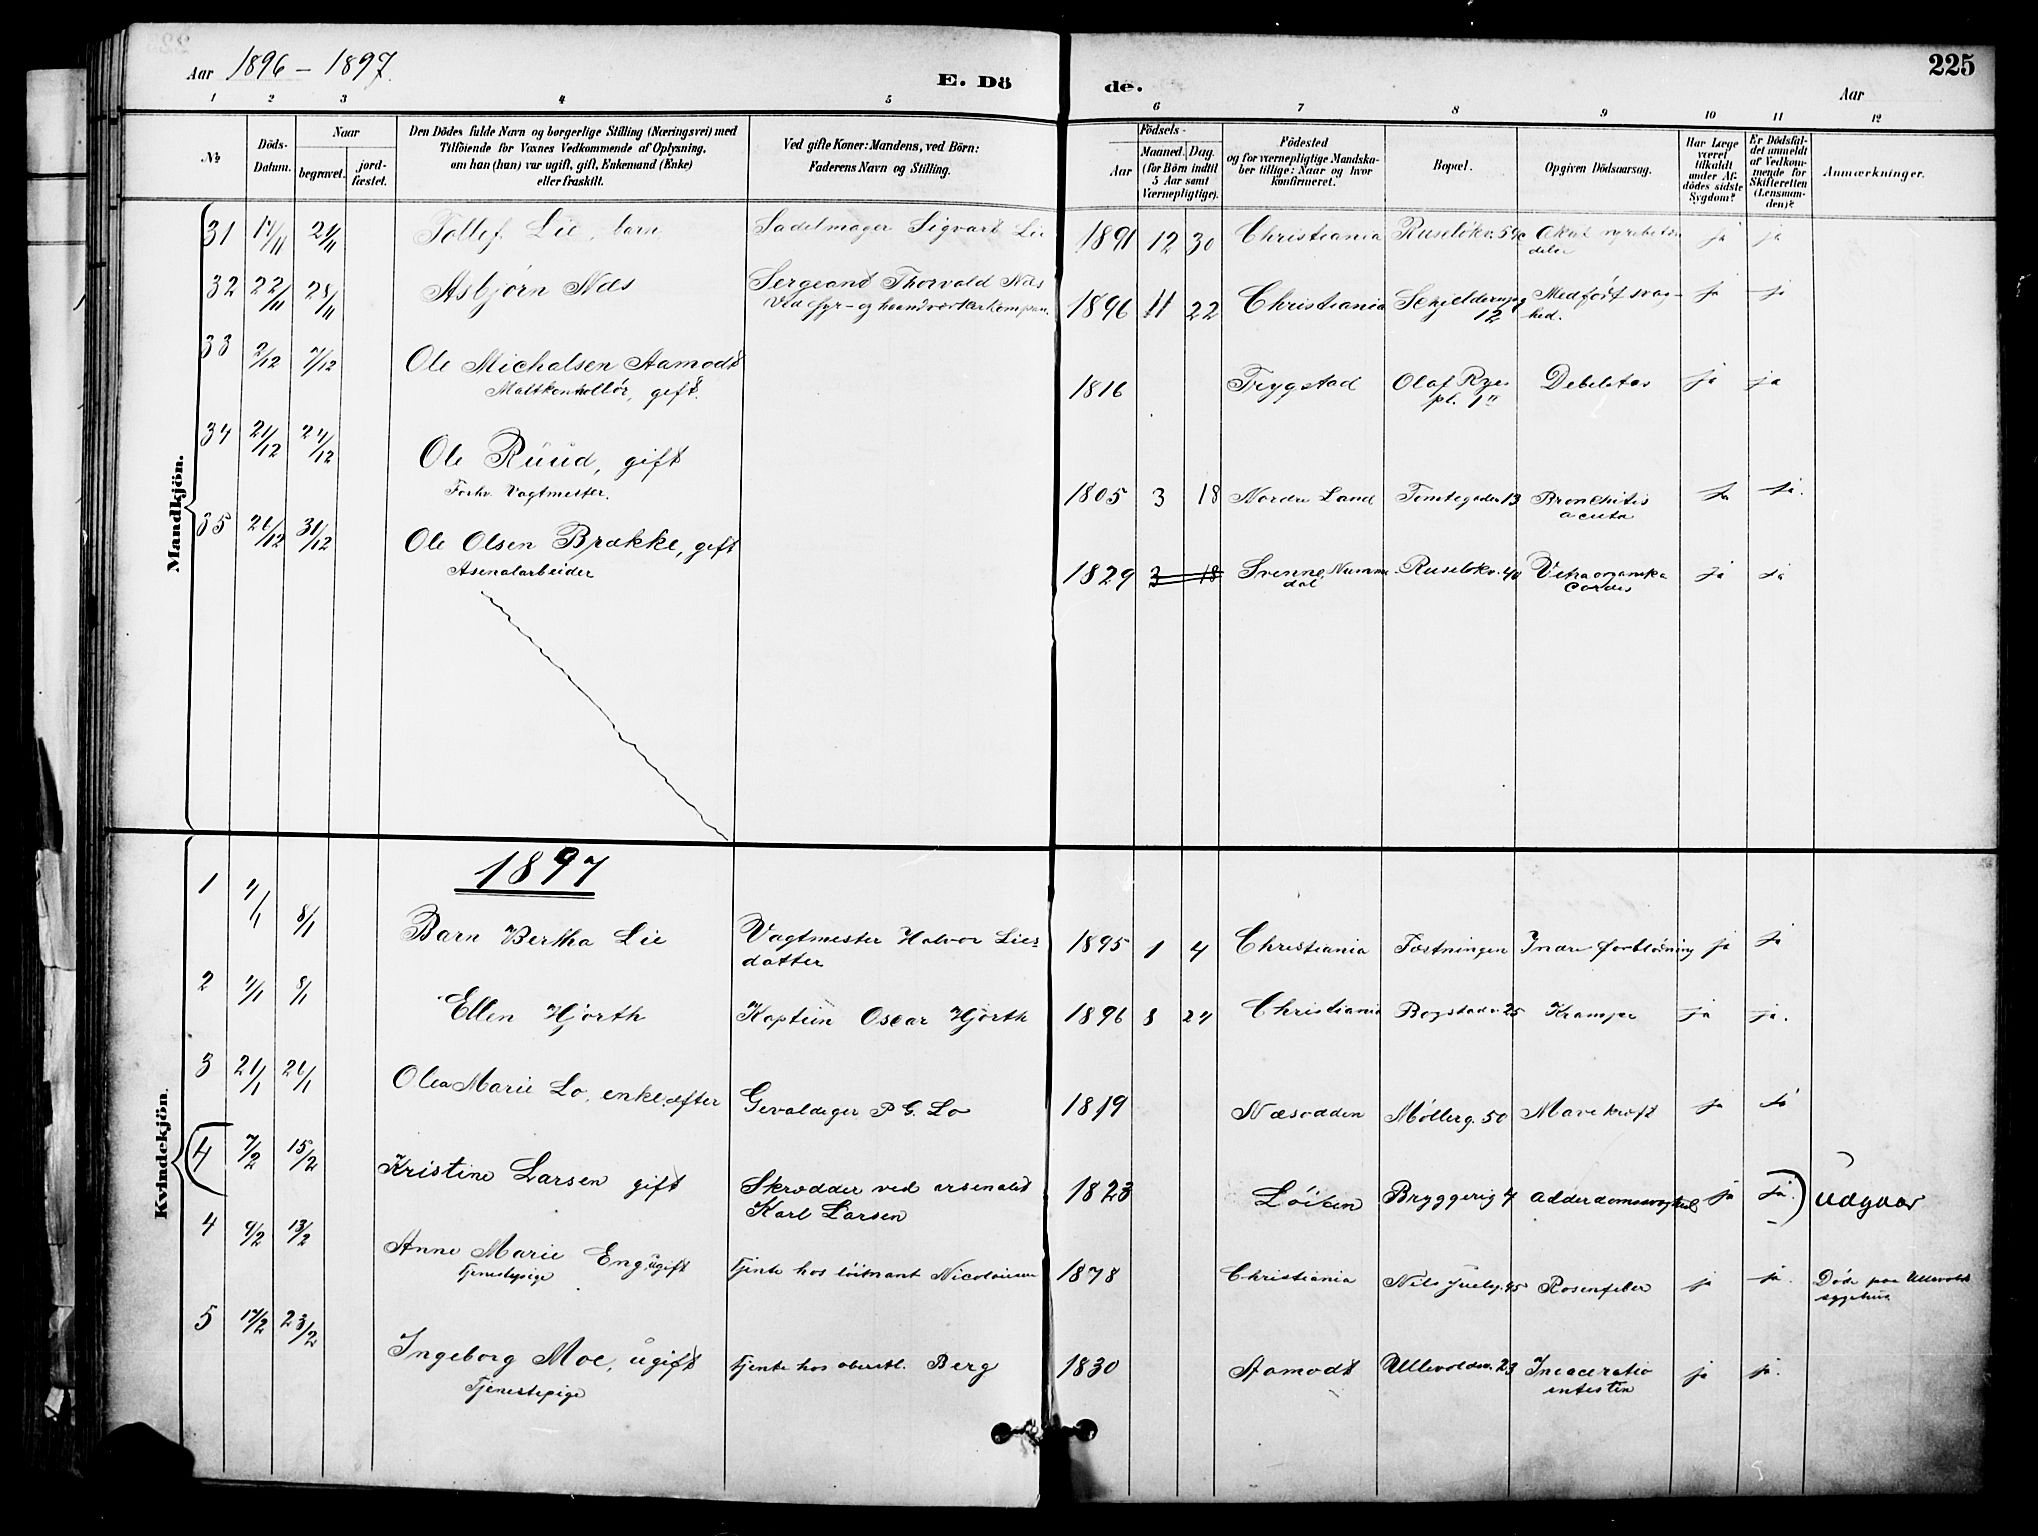 Aar 1896 – 1897.
E. Dö
de.
225
Aar
1 2 3 4 5 6 7 8 9 10 11 12
No
Döds-Datum.
Naar
begravet.
jord-fæstet.
Den Dödes fulde Navn og borgerlige Stilling (Næringsvei) med
Tilföiende for Voxnes Vedkommende af Oplysning,
om han (hun) var ugift, gift, Enkemand (Enke)
eller fraskilt.
Ved gifte Koner: Mandens, ved Börn:
Faderens Navn og Stilling.
Födsels-
Aar
Maaned. Dag.
(for Börn indtil
5 Aar samt
Værnepligtige).
Födested
og for værnepligtige Mandska-
ber tillige: Naar og hvor
konfirmeret.
Bopæl.
Opgiven Dödsaarsag.
Har Læge
været
tilkaldt
under Af-
dödes sidste
Sygdom?
Er Dödsfal-
det anmeldt
af Vedkom-
mende for
Skifteretten
(Lensman-
den)?
Anmærkninger.
Mandkjön.
31 17/11 21/11 Tollef Lie, barn Sadelmager Sigvart Lie 1891 12 30 Christiania Ruseløkv. ja ja
32 22/11 28/11 Asbjørn Næs Sergeant Thorvald Næs
ved fyr- og haandverkerkompan. 1896 11 22 Christiania 12 Medfødt svag-
hed. ja ja
33 2/12 7/12 Ole Michalsen Aamodt
Maltkontrollør, gift. 1816 Trygstad Olaf Ryes
pl. 1 II Debelitas ja ja
34 21/12 24/12 Ole Ruud, gift
Forhv. Vagtmester. 1805 3 18 Nordre Land Tomtegaden 13 Bronchitis
acuta ja ja.
35 26/12 31/12 Ole Olsen Brække, gift
Asenalarbeider 1829 3 18 Svenne Numme
dal Ruseløkv. 40 cordis ja ja
Kvindekjön.
1897
1 4/1 8/1 Barn Bertha Lie Vagtmester Halvor Lies
datter 1895 1 4 Christiania Fæstningen Indre forblødning ja ja
2 4/1 8/1 Ellen Hjorth Kaptein Oscar Hjorth 1896 8 24 Christiania Bogstadv. 25 Kramper ja ja.
3 21/1 26/1 Olea Marie Lo, enke efter Gevaldiger P G. Lo 1819 Næsodden Møllerg. 50 Mavekræft ja ja
(4 7/2 15/2 Kristine Larsen gift Skrædder ved arsenalet
Karl Larsen 1823 Løiten Bryggerig 4 ja ja.) udgaar
4 9/2 13/2 Anne Marie Eng, ugift
Tjenestepige tjente hos løitnant 1878 Christiania Nils Juelsg. 45 Rosenfeber ja ja. Døde paa Ullevold
sygehus
5 17/2 23/2 Ingeborg Moe, ugift
Tjenestepige tjente hos oberstl. Berg 1830 Aamodt Ullevoldsv. 23 Incaceratio
intestin ja ja.